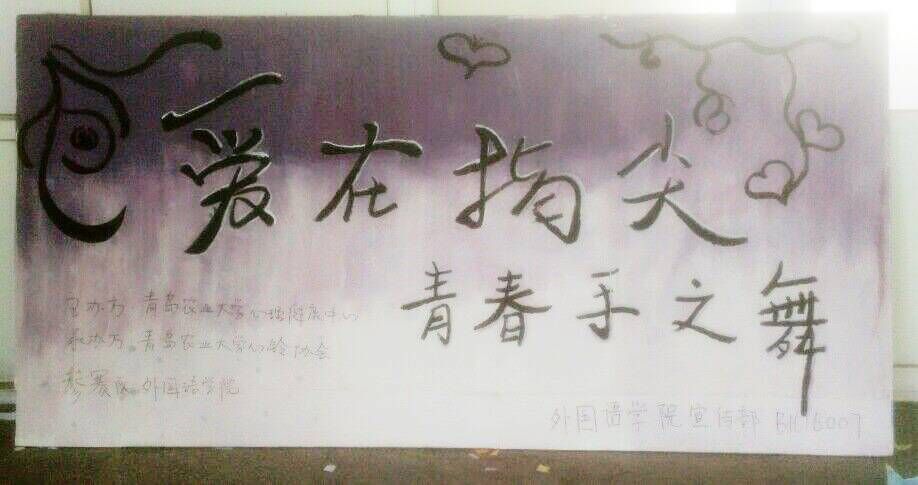 爱在指尖
青春手之舞
主办方：青岛农业大学心理健康中心
承办方：青岛农业大学心龄协会
参赛队：外国语学院
外国语学院宣传部